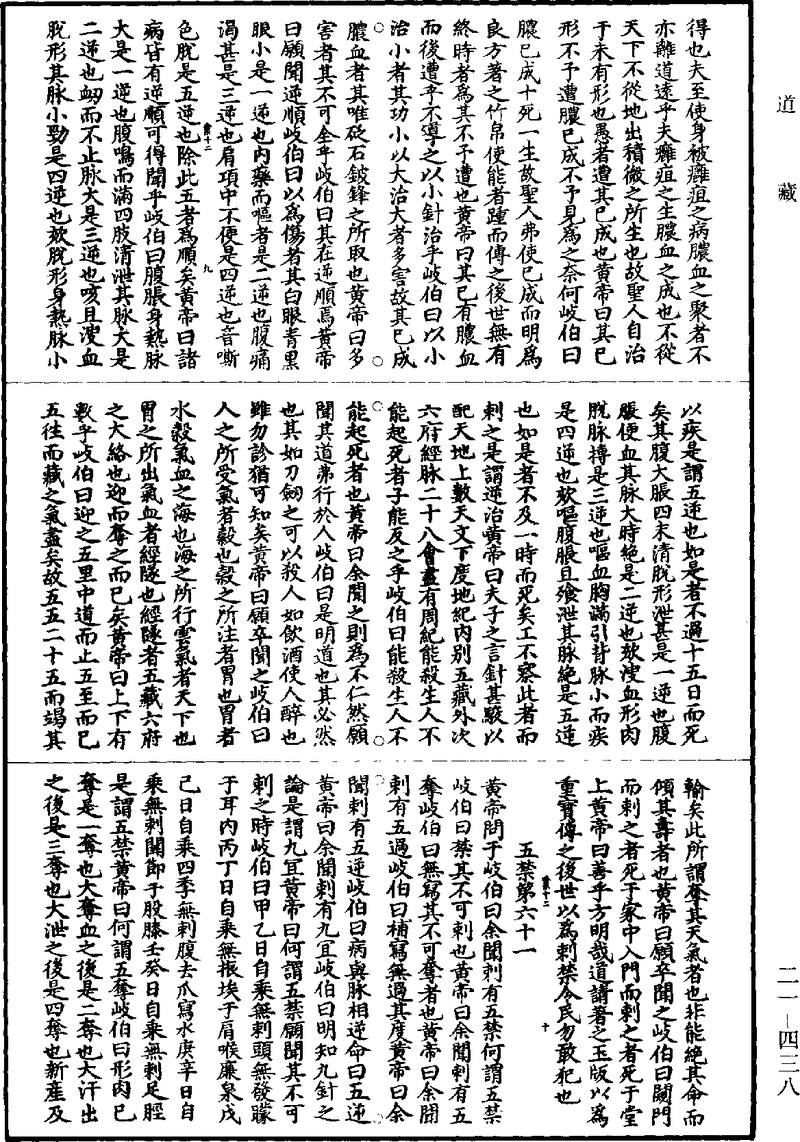 道藏
得也夫至使身被癰疽之病膿血之聚者不
亦離道遠乎夫癰疽之生膿血之成也不從
天下不從地出積微之所生也故聖人自治
于未有形也愚者遭其已成也黄帝曰其已
形不予遭膿已成不予見爲之奈何岐伯曰
膿已成十死一生故聖人弗使已成而明爲
良方著之竹帛使能者踵而傳之後世無有
終時者爲其不予遭也黄帝曰其已有膿血
而後遭乎不導之以小針治乎岐伯曰以小
治小者其功小以大治大者多害故其已成
膿血者其唯砭石鈹鋒之所取也黄帝曰多
害者其不可全乎岐伯曰其在逆順焉黄帝
曰願聞逆順岐伯曰以爲傷者其白眼青黑
眼小是一逆也内藥而嘔者是二逆也腹痛
渴甚是三逆也肩項中不便是四逆也音嘶
色脫是五逆也除此五者爲順矣黄帝曰諸
病皆有逆順可得聞乎岐伯曰腹脹身熱脉
大是一逆也腹鳴而滿四肢清泄其脉大是
二逆也衂而不止脉大是三逆也咳且溲血
脫形其脉小勁是四逆也欬脫形身熱脉小
以疾是謂五逆也如是者不過十五日而死
矣其腹大脹四末清脫形泄甚是一逆也腹
脹便血其脉大時絶是二逆也欬溲血形肉
脫脉搏是三逆也嘔血胸滿引背脉小而疾
是四逆也欬嘔腹脹且飱泄其脉絶是五逆
也如是者不及一時而死矣工不察此者而
刺之是謂逆治黄帝曰夫子之言針甚駿以
配天地上數天文下度地紀内別五藏外次
六府經脉二十八會盡有周紀能殺生人不
能起死者子能反之乎岐伯曰能殺生人不
能起死者也黄帝曰余聞之則爲不仁然願
聞其道弗行於人岐伯曰是明道也其必然
也其如刀劒之可以殺人如飲酒使人醉也
雖勿診猶可知矣黄帝曰願卒聞之岐伯曰
人之所受氣者穀也穀之所注者胃也胃者
水穀氣血之海也海之所行雲氣者天下也
胃之所出氣血者經隧也經隧者五藏六府
之大絡也迎而奪之而已矣黄帝曰上下有
數乎岐伯曰迎之五里中道而止五至而已
五往而藏之氣盡矣故五五二十五而竭其
輸矣此所謂奪其天氣者也非能絶其命而
傾其壽者也黄帝曰願卒聞之岐伯曰闚門
而刺之者死于家中入門而刺之者死于堂
上黄帝曰善乎方明哉道請著之玉版以爲
重寶傳之後世以爲刺禁令民勿敢犯也
五禁第六十一
黄帝問于岐伯曰余聞刺有五禁何謂五禁
岐伯曰禁其不可刺也黄帝曰余聞刺有五
奪岐伯曰無寫其不可奪者也黄帝曰余聞
刺有五過岐伯曰補寫無過其度黄帝曰余
聞刺有五逆岐伯曰病與脉相逆命曰五逆
黄帝曰余聞刺有九冝岐伯曰明知九針之
論是謂九冝黄帝曰何謂五禁願聞其不可
刺之時岐伯曰甲乙日自乘無刺頭無發朦
于耳内丙丁日自乘無振埃于肩喉廉泉戊
己日自乘四季無刺腹去爪寫水庚辛日自
乘無刺關節于股膝壬癸日自乘無刺足脛
是謂五禁黄帝曰何謂五奪岐伯曰形肉已
奪是一奪也大奪血之後是二奪也大汗出
之後是三奪也大泄之後是四奪也新産及
二一—四三八